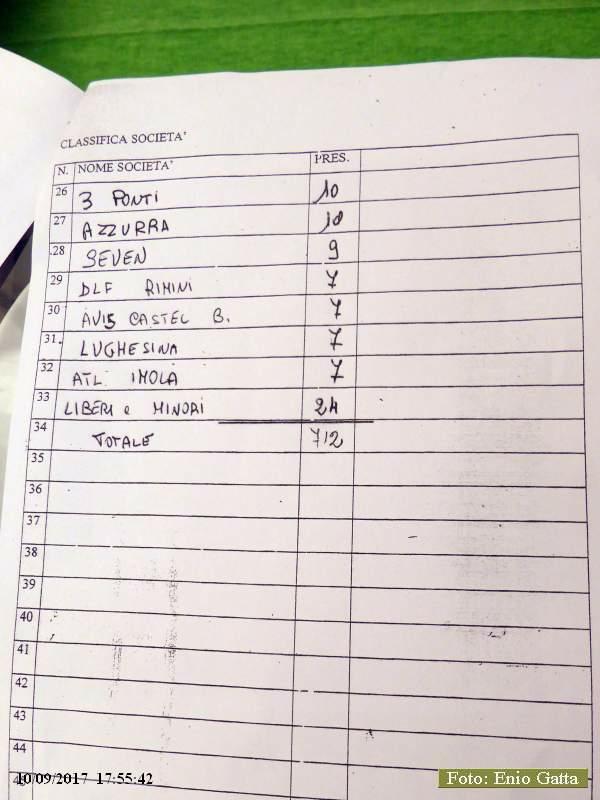 CLASSIFICA SOCIETA'
N. NOME SOCIETA' PRES.
26 3 PONTI 10
27 AZZURRA 10
28 SEVEN 9
29 DLF RIMINI 7
30 AVIS CASTEL B. 7
31 LUGHESINA 7
32 ATL. IMOLA 7
33 LIBERI e MINORI 24
34 TOTALE 712
35
36
37
38
39
40
41
42
43
44
10/09/2017 17:55:42
Foto: Enio Gatta